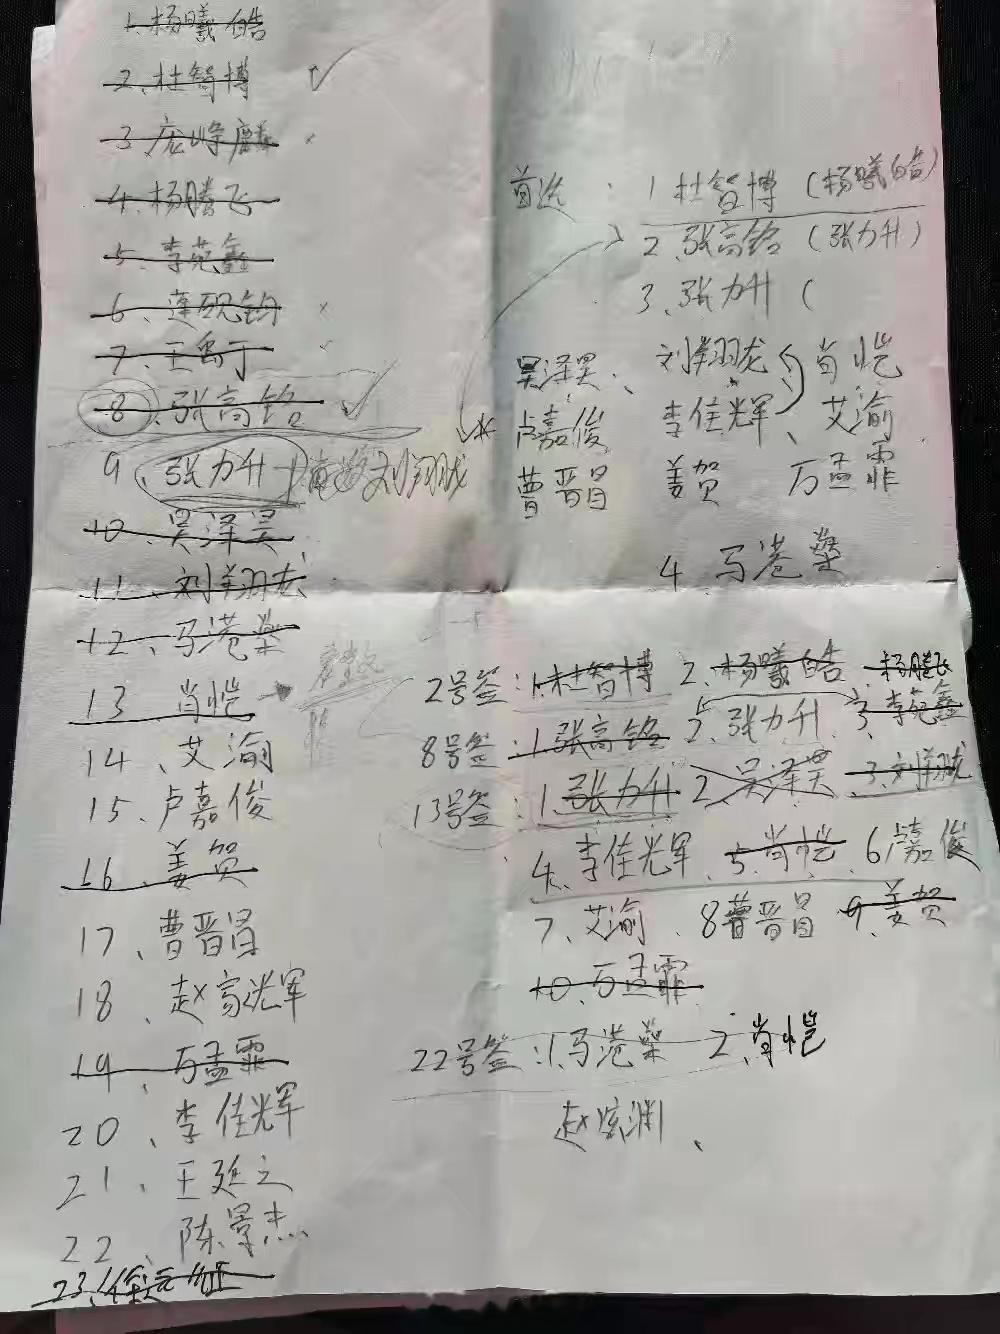 1. 杨曦皓
2、杜智博
3、庞峥麟
4、杨腾飞
5、李苑鑫
6、莲砚钧
7、王禹于
8、张高铭
9、张力升 刘翔龙
10、吴泽昊
11、刘翔龙
12、马港桑
13 肖恺
14、艾渝
15、卢嘉俊
16、姜贺
17、曹晋昌
18、赵家洸军
19、万孟霏
20、李佳光军
21、王延之
22、陈景杰
23、
首选：1 杜智博（杨曦皓）
2、张高铭（张力升）
3、张力升（
吴泽昊、刘翔龙 肖恺
卢嘉俊 李佳辉、艾渝
曹晋昌 姜贺 万孟霏
4 马港桑
2号签：1.杜智博 2、杨曦皓 杨腾飞
8号签：1.张高铭 2、张力升 3、李苑鑫
13号签：1、张力升 2、吴泽昊 3、刘翔龙
4、李佳光军 5、肖恺 6、卢嘉俊
7、艾渝、8曹晋昌 9、姜贺
10、万孟霏
22号签：1.马港桑 2、肖恺
赵浤渊、